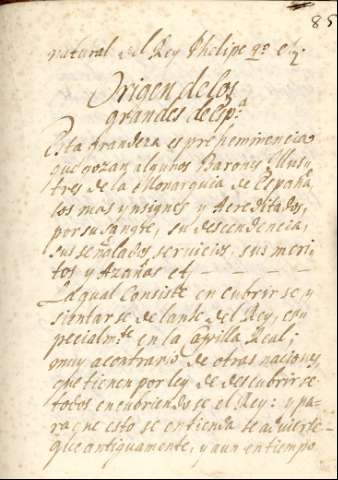 85
natural del Rey Phelipe 4º etz.
Origen de los
grandes de espª
Esta grandeza es preheminencia
que gozan algunos Barones Illus
tres de la Monarquia de España,
los mas ynsignes y Acreditados,
por su sangre, su descendencia,
sus señalados servicios, sus meri
tos y Azañas et
La qual Consiste en cubrirse, y
sientarse delante del Rey, es
pecialmte en la Capilla Real;
muy a contrario de otras naciones,
que tienen por ley, de descubrirse
todos encubriendose el Rey: y pa
ra que esto se entienda se advierte
que antiguamente, y aun en tiempo